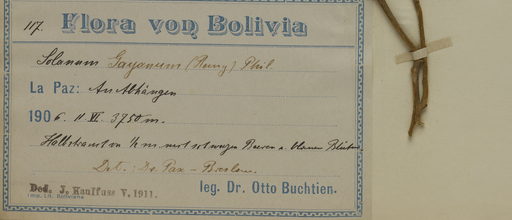 117. Flora von Bolivia
Solanum Gayanum (Remy) Phil.
La Paz: An Abhängen
1906. 11. VI. 3750 m.
Halbstrauch von ½ m. mit schwarzen Beeren u. blauen Blüten
Det.: Dr. Pax – Breslau.
Ded. J. Kauffuss V. 1911. leg. Dr. Otto Buchtien.